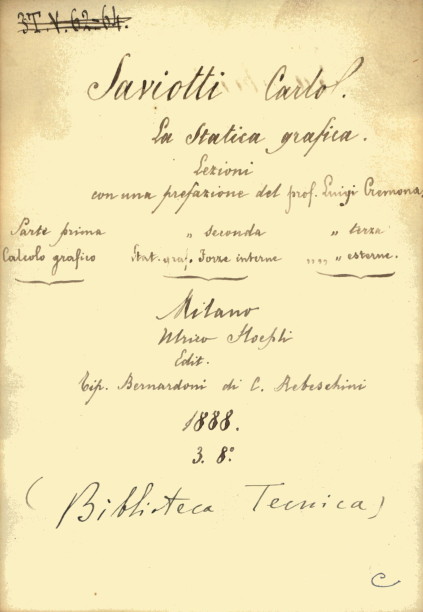 3T. V. 62-64.
Saviotti Carlo.
La Statica grafica.
Lezioni
con una prefazione del prof. Luigi Cremona.
Parte prima „ seconda „ terza
Calcolo grafico Stat. graf. Forze interne „„ „ esterne.
Milano
Ulrico Hoepli
Edit.
Tip. Bernardoni di C. Rebeschini
1888.
3. 8°.
(Biblioteca Tecnica)
C